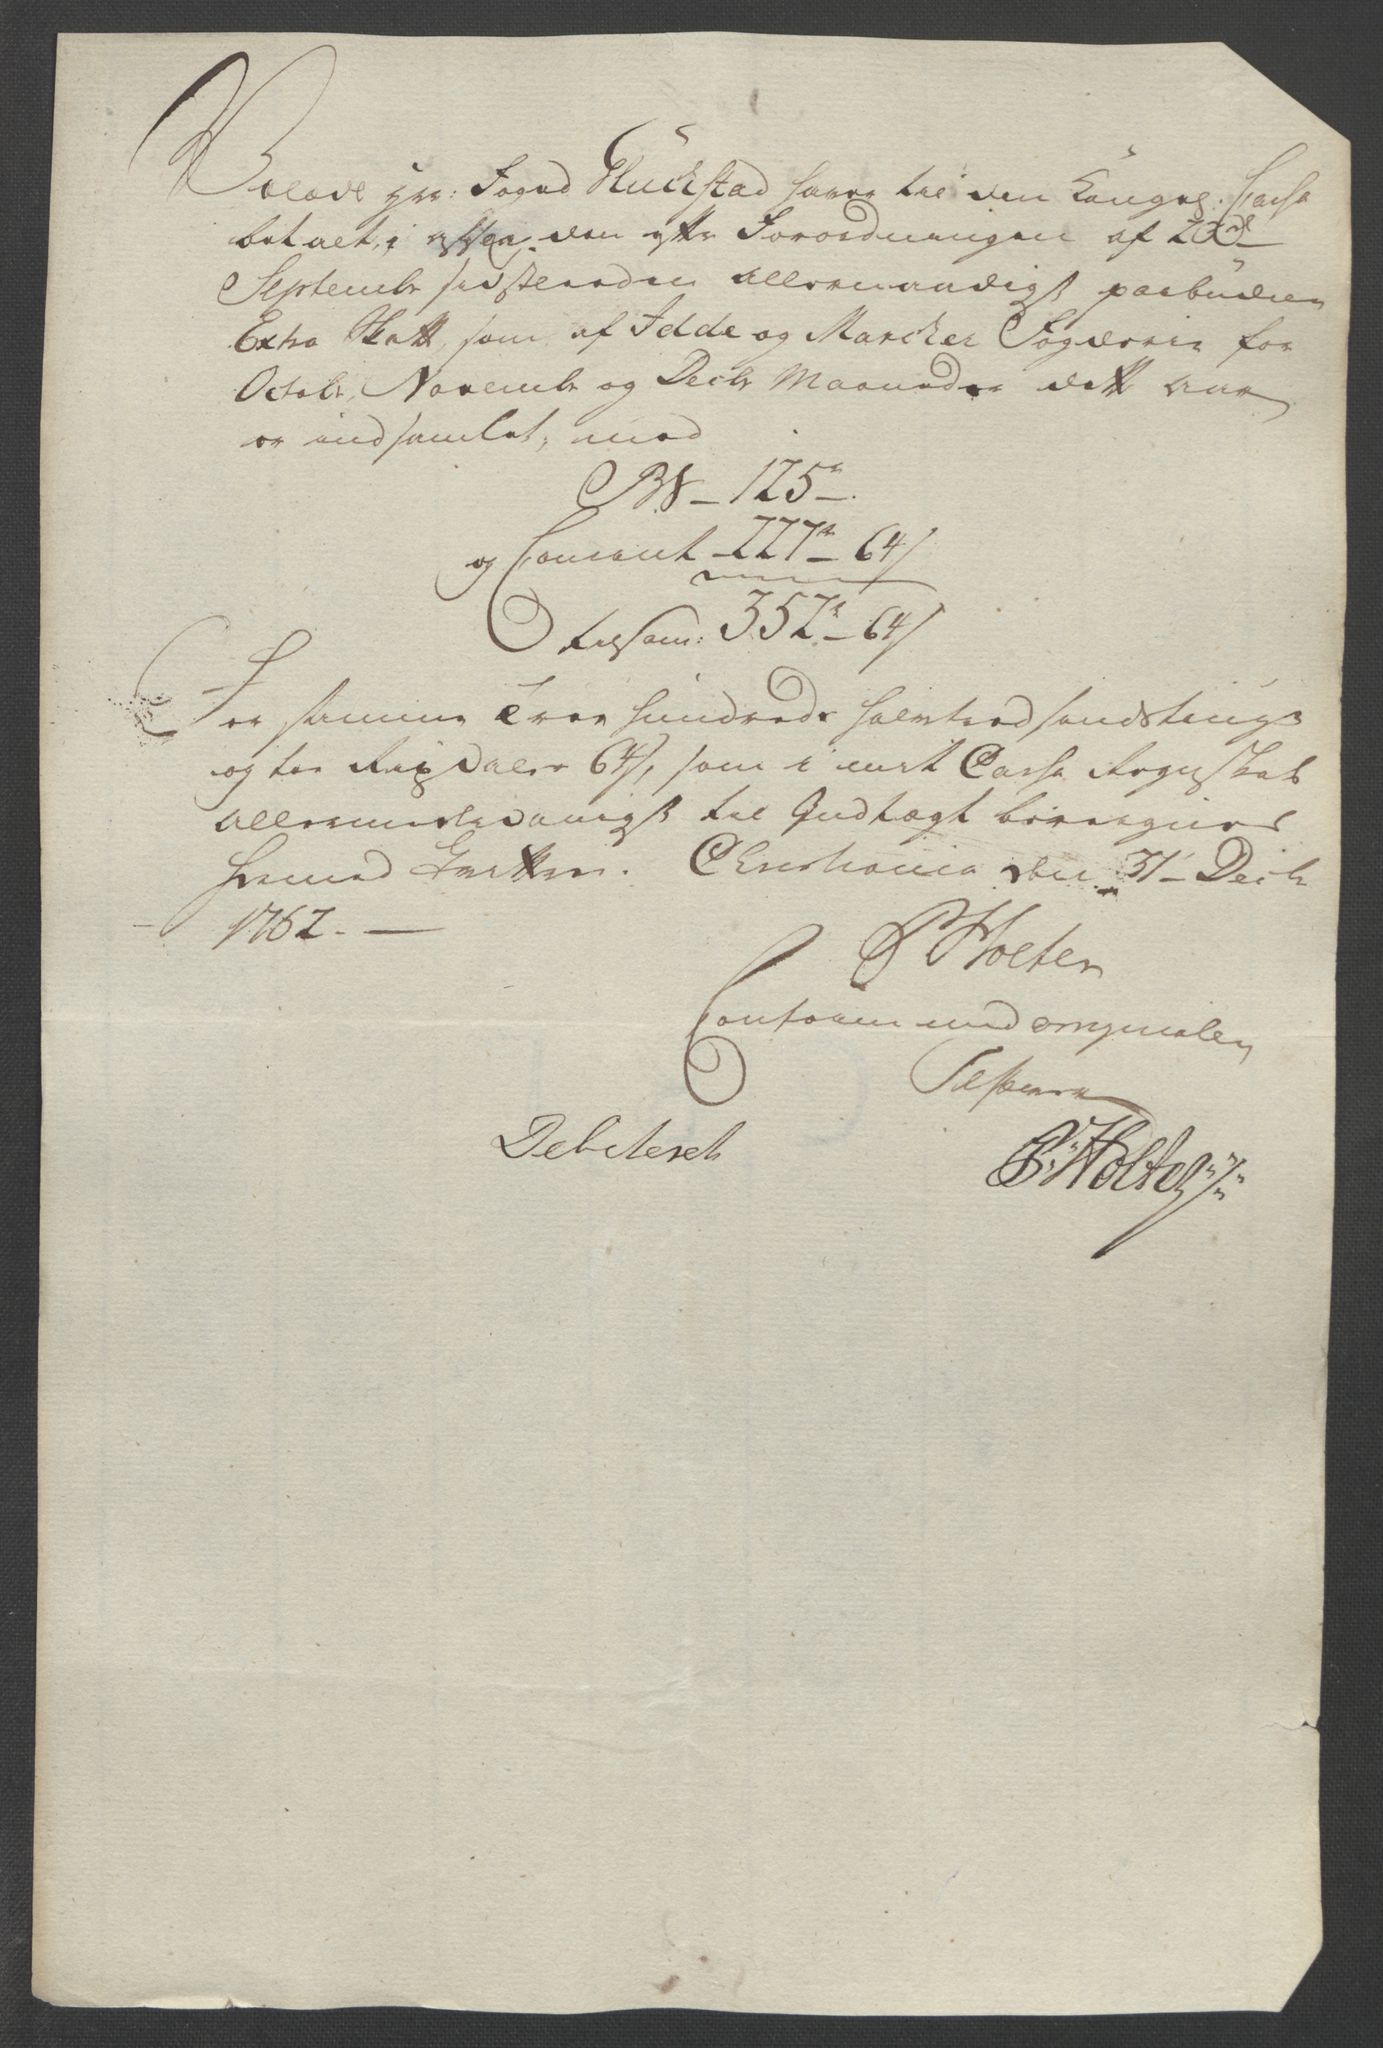 Velædle Hr: Foged Glückstad haver til den Kongel. Cassa
betalt, i den efter Forordningen af 23de
Septembr sidstleeden allernaadigst paabudne
Extra Skatt, som af Idde og Marcker Fogderie for
Octobr, Novembr og Decbr Maaneder dette aar
er indsamlet, med
B: 125 rd
og Courant 227 rd 64 s
tilsam: 352 rd 64 s
For samme Tree hundrede halvtredsindstiuge
og toe Rixdaler 64 s, som i mit Cassa Regnskab
allerunderdanigst til Indtægt beregnes
hermed qvitteres. Christiania den 31 Decbr
1762.
P Holter
Conform med originalen
Testerer
Debiteret
P: Holter